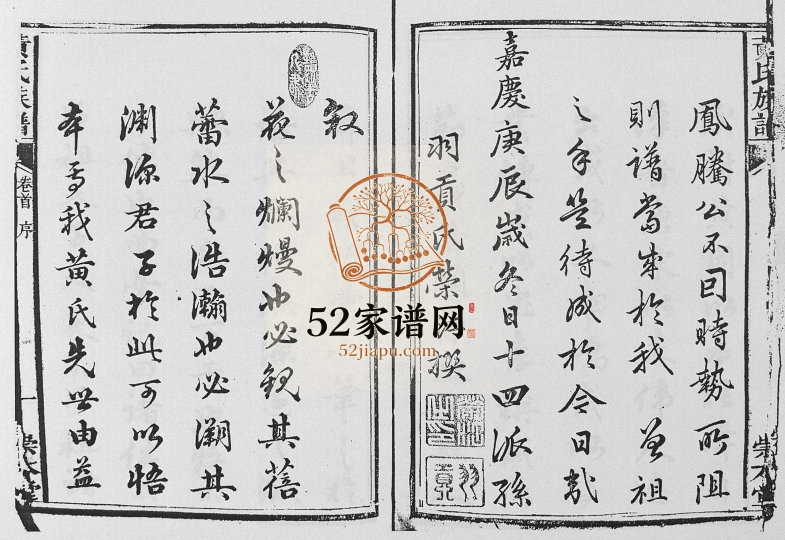 鳳騰公不回時勢所阻
則譜當成於我曾祖
之手豈待成於今日哉
嘉慶庚辰歲冬日十四派孫
羽貢氏榮撰
敘
花之爛熳也必觀其蓓
蕾水之浩瀚也必溯其
淵源君子於此可以悟
本焉我黃氏先世由益
黃氏族譜
卷首 序
一
52家谱网
52jiapu.com